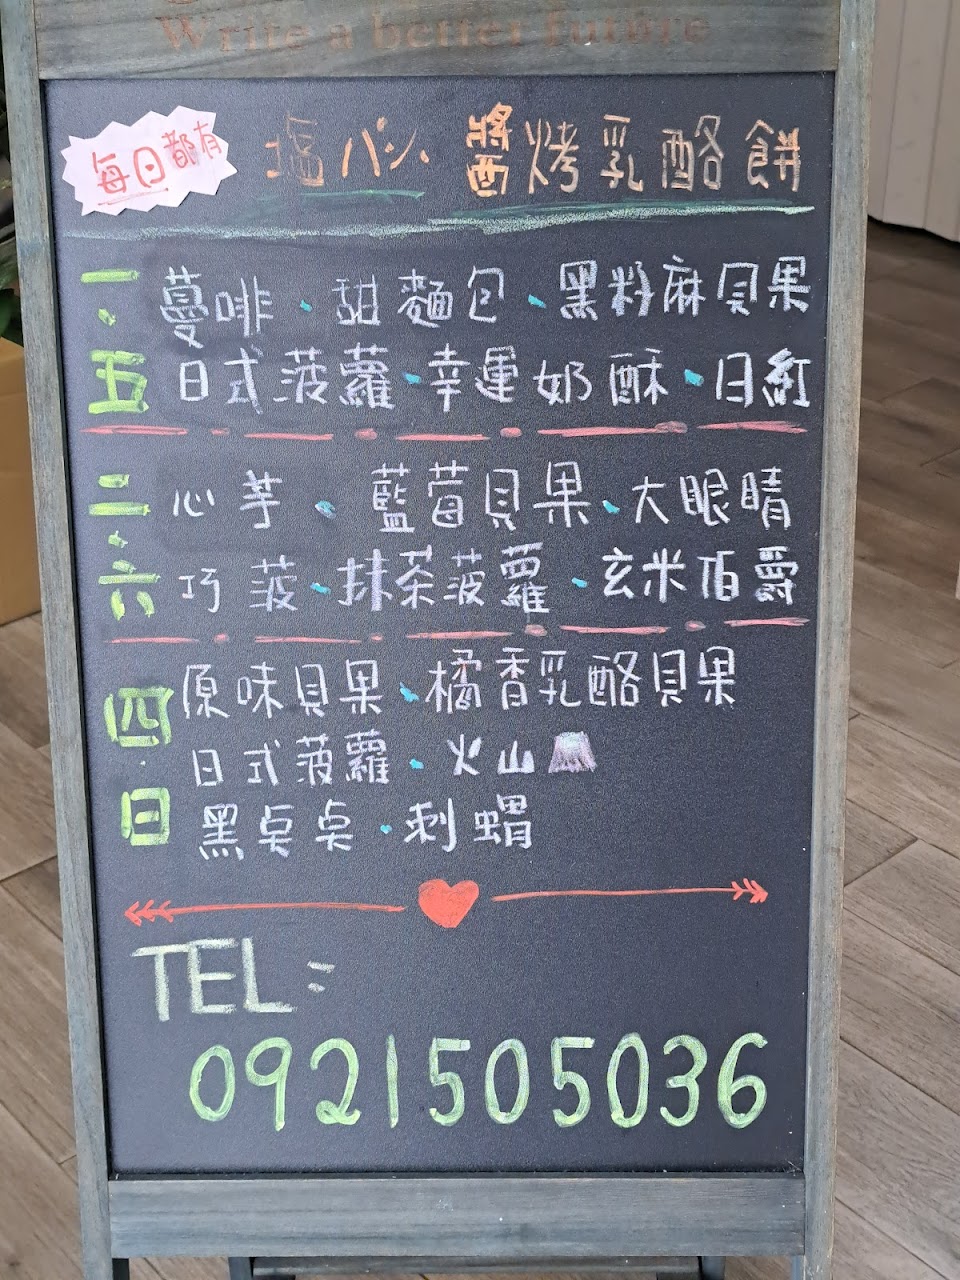 Write a better future
每日都有
塩パン 醬烤乳酪餅
一、五
蔓啡、甜麵包、黑籽麻貝果
日式菠蘿、幸運奶酥、日紅
二、六
心芋、藍莓貝果、大眼睛
巧菠、抹茶菠蘿、玄米伯爵
四、日
原味貝果、橘香乳酪貝果
日式菠蘿、火山
黑桌桌、刺蝟
TEL:
0921505036